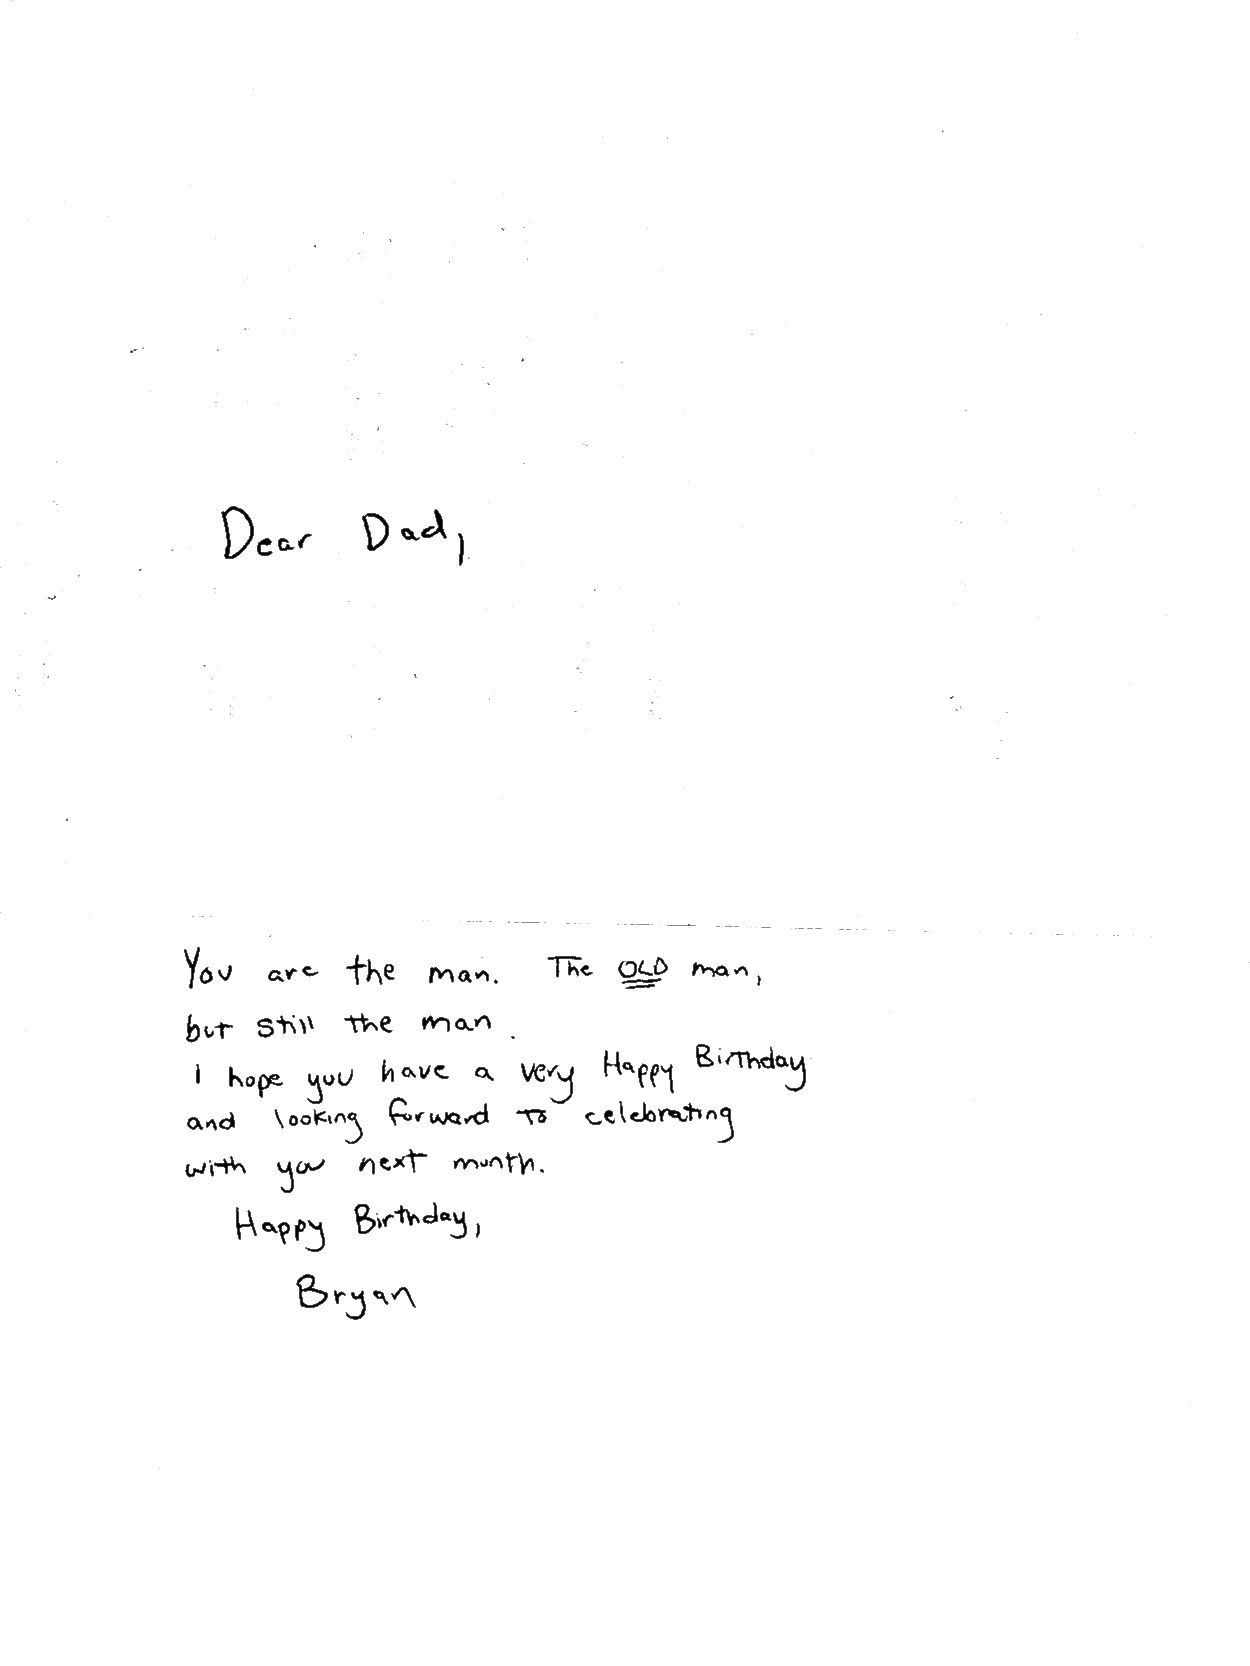 Dear Dad,
You are the man. The OLD man,
but still the man.
I hope you have a very Happy Birthday
and looking forward to celebrating
with you next month.
Happy Birthday,
Bryan